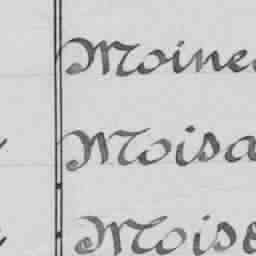 Moine
Moisa
Moise